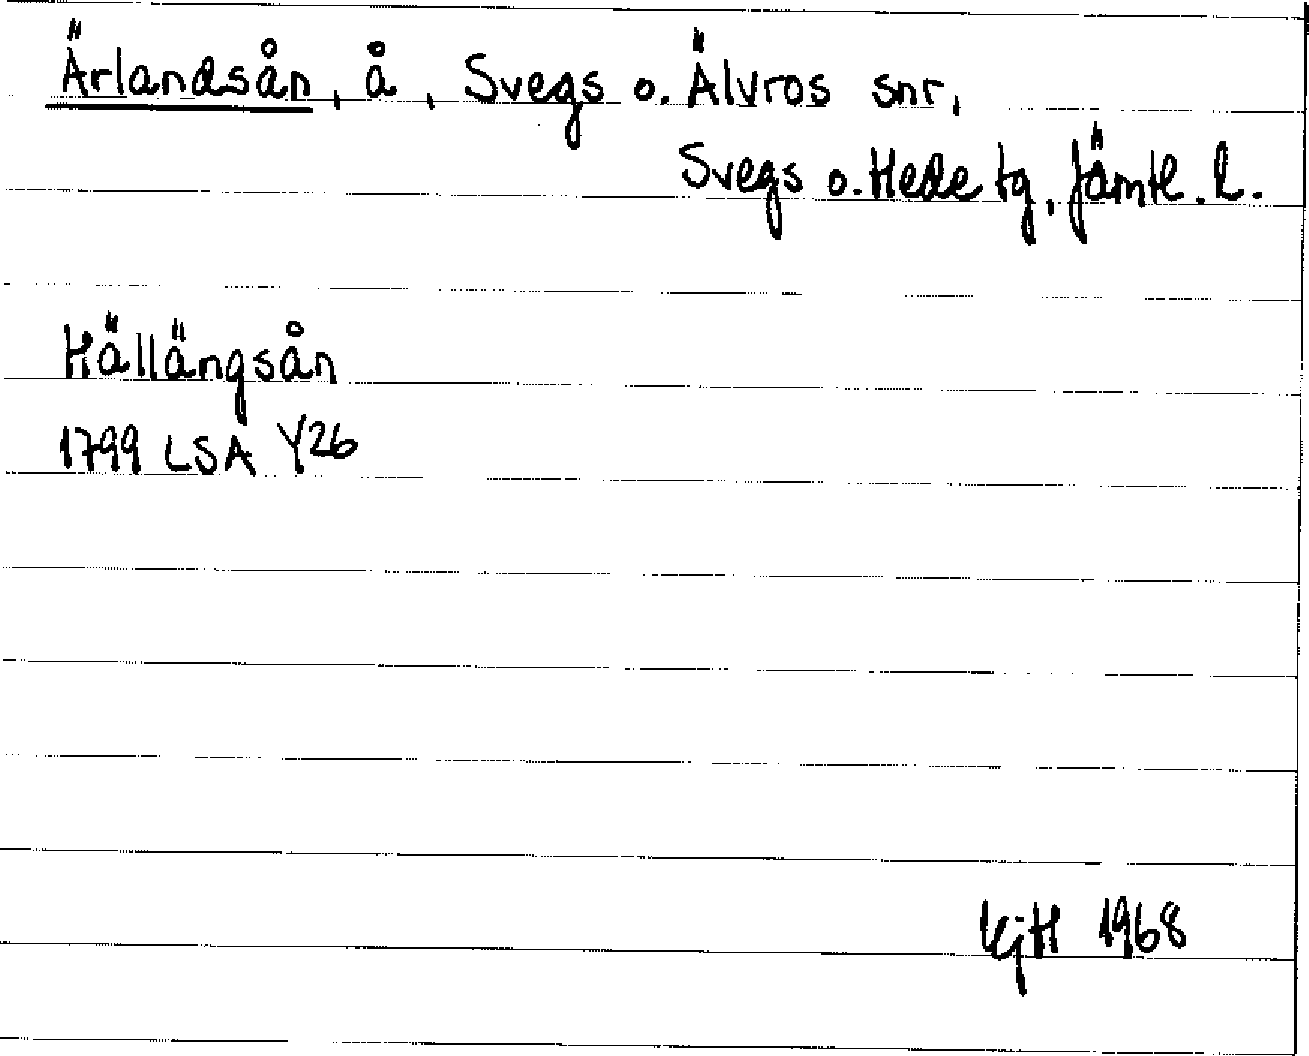 Ärlandsån, å, Svegs o. Älvros snr,
Svegs o. Hede tg, Jämtl. l.
Hällängsån
1799 LSA Y26
KjH 1968